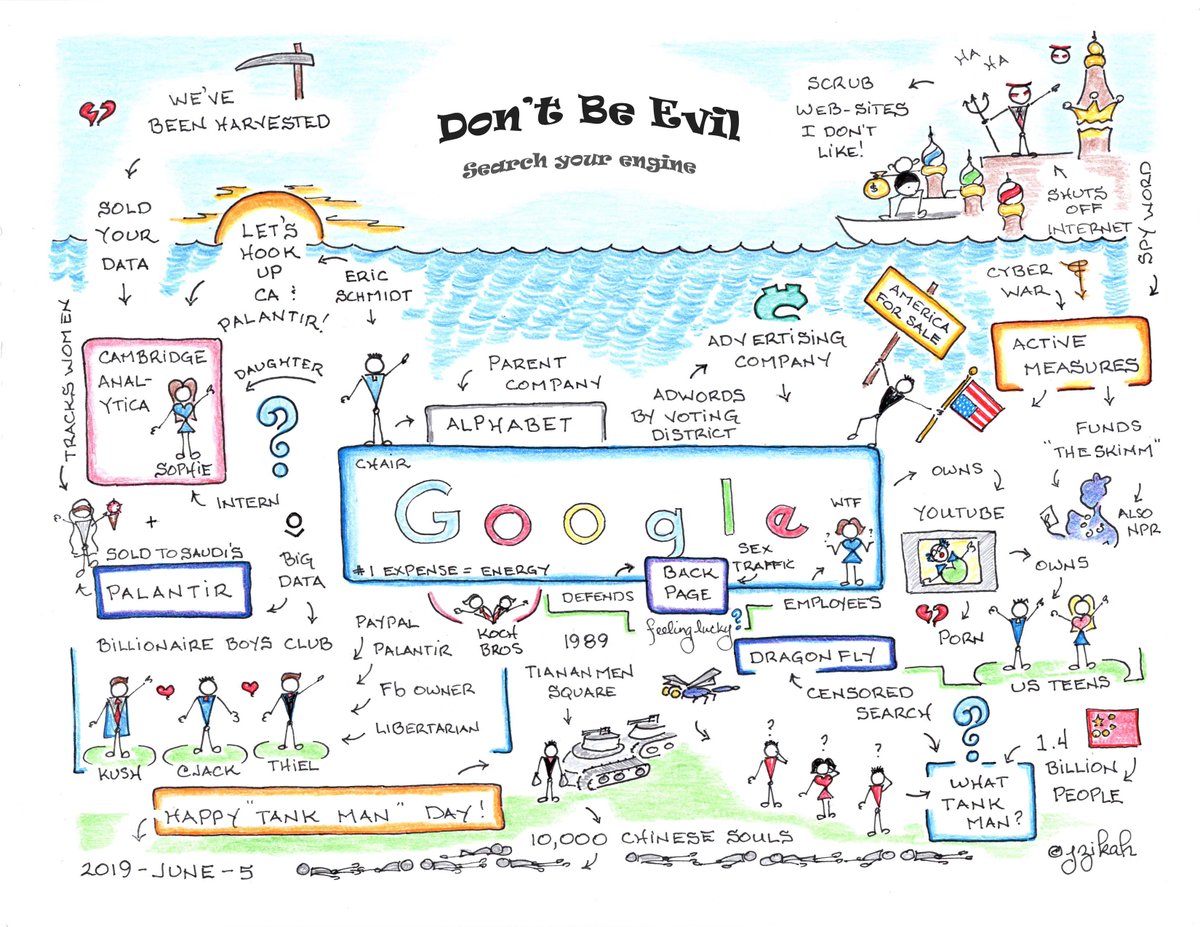 Don't Be Evil
Search your engine
WE'VE
BEEN HARVESTED
SOLD
YOUR
DATA
LET'S
HOOK
UP
CA &
PALANTIR!
ERIC
SCHMIDT
HA
HA
SCRUB
WEB-SITES
I DON'T
LIKE!
$
SHUTS
OFF
INTERNET
SPY WORD
CYBER
WAR
AMERICA
FOR SALE
ACTIVE
MEASURES
TRACKS WOMEN
CAMBRIDGE
ANAL-
YTICA
SOPHIE
DAUGHTER
?
INTERN
PARENT
COMPANY
ALPHABET
ADVERTISING
COMPANY
ADWORDS
BY VOTING
DISTRICT
FUNDS
"THE SKIMM"
ALSO
NPR
CHAIR
Google
WTF
? ?
#1 EXPENSE = ENERGY
SEX
TRAFFIC
BACK
PAGE
OWNS
YOUTUBE
OWNS
PORN
US TEENS
+
SOLD TO SAUDI'S
PALANTIR
BIG
DATA
BILLIONAIRE BOYS CLUB
KUSH
CJACK
THIEL
PAYPAL
PALANTIR
Fb OWNER
LIBERTARIAN
KOCH
BROS
DEFENDS
feeling lucky?
EMPLOYEES
1989
TIANANMEN
SQUARE
DRAGONFLY
CENSORED
SEARCH
?
? ? ?
1.4
BILLION
PEOPLE
WHAT
TANK
MAN?
HAPPY "TANK MAN" DAY!
10,000 CHINESE SOULS
2019-JUNE-5
@jzikah